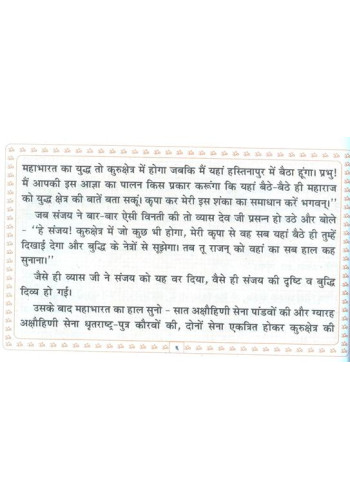 महाभारत का युद्ध तो कुरुक्षेत्र में होगा जबकि मैं यहां हस्तिनापुर में बैठा हूंगा। प्रभु!
मैं आपकी इस आज्ञा का पालन किस प्रकार करूंगा कि यहां बैठे-बैठे ही महाराज
को युद्ध क्षेत्र की बातें बता सकूं। कृपा कर मेरी इस शंका का समाधान करें भगवन्।''
जब संजय ने बार-बार ऐसी विनती की तो व्यास देव जी प्रसन्न हो उठे और बोले
- ''हे संजय! कुरुक्षेत्र में जो कुछ भी होगा, मेरी कृपा से वह सब यहां बैठे ही तुम्हें
दिखाई देगा और बुद्धि के नेत्रों से सूझेगा। तब तू राजन् को वहां का सब हाल कह
सुनाना।''
जैसे ही व्यास जी ने संजय को यह वर दिया, वैसे ही संजय की दृष्टि व बुद्धि
दिव्य हो गई।
उसके बाद महाभारत का हाल सुनो - सात अक्षौहिणी सेना पांडवों की और ग्यारह
अक्षौहिणी सेना धृतराष्ट्र-पुत्र कौरवों की, दोनों सेना एकत्रित होकर कुरुक्षेत्र की
६